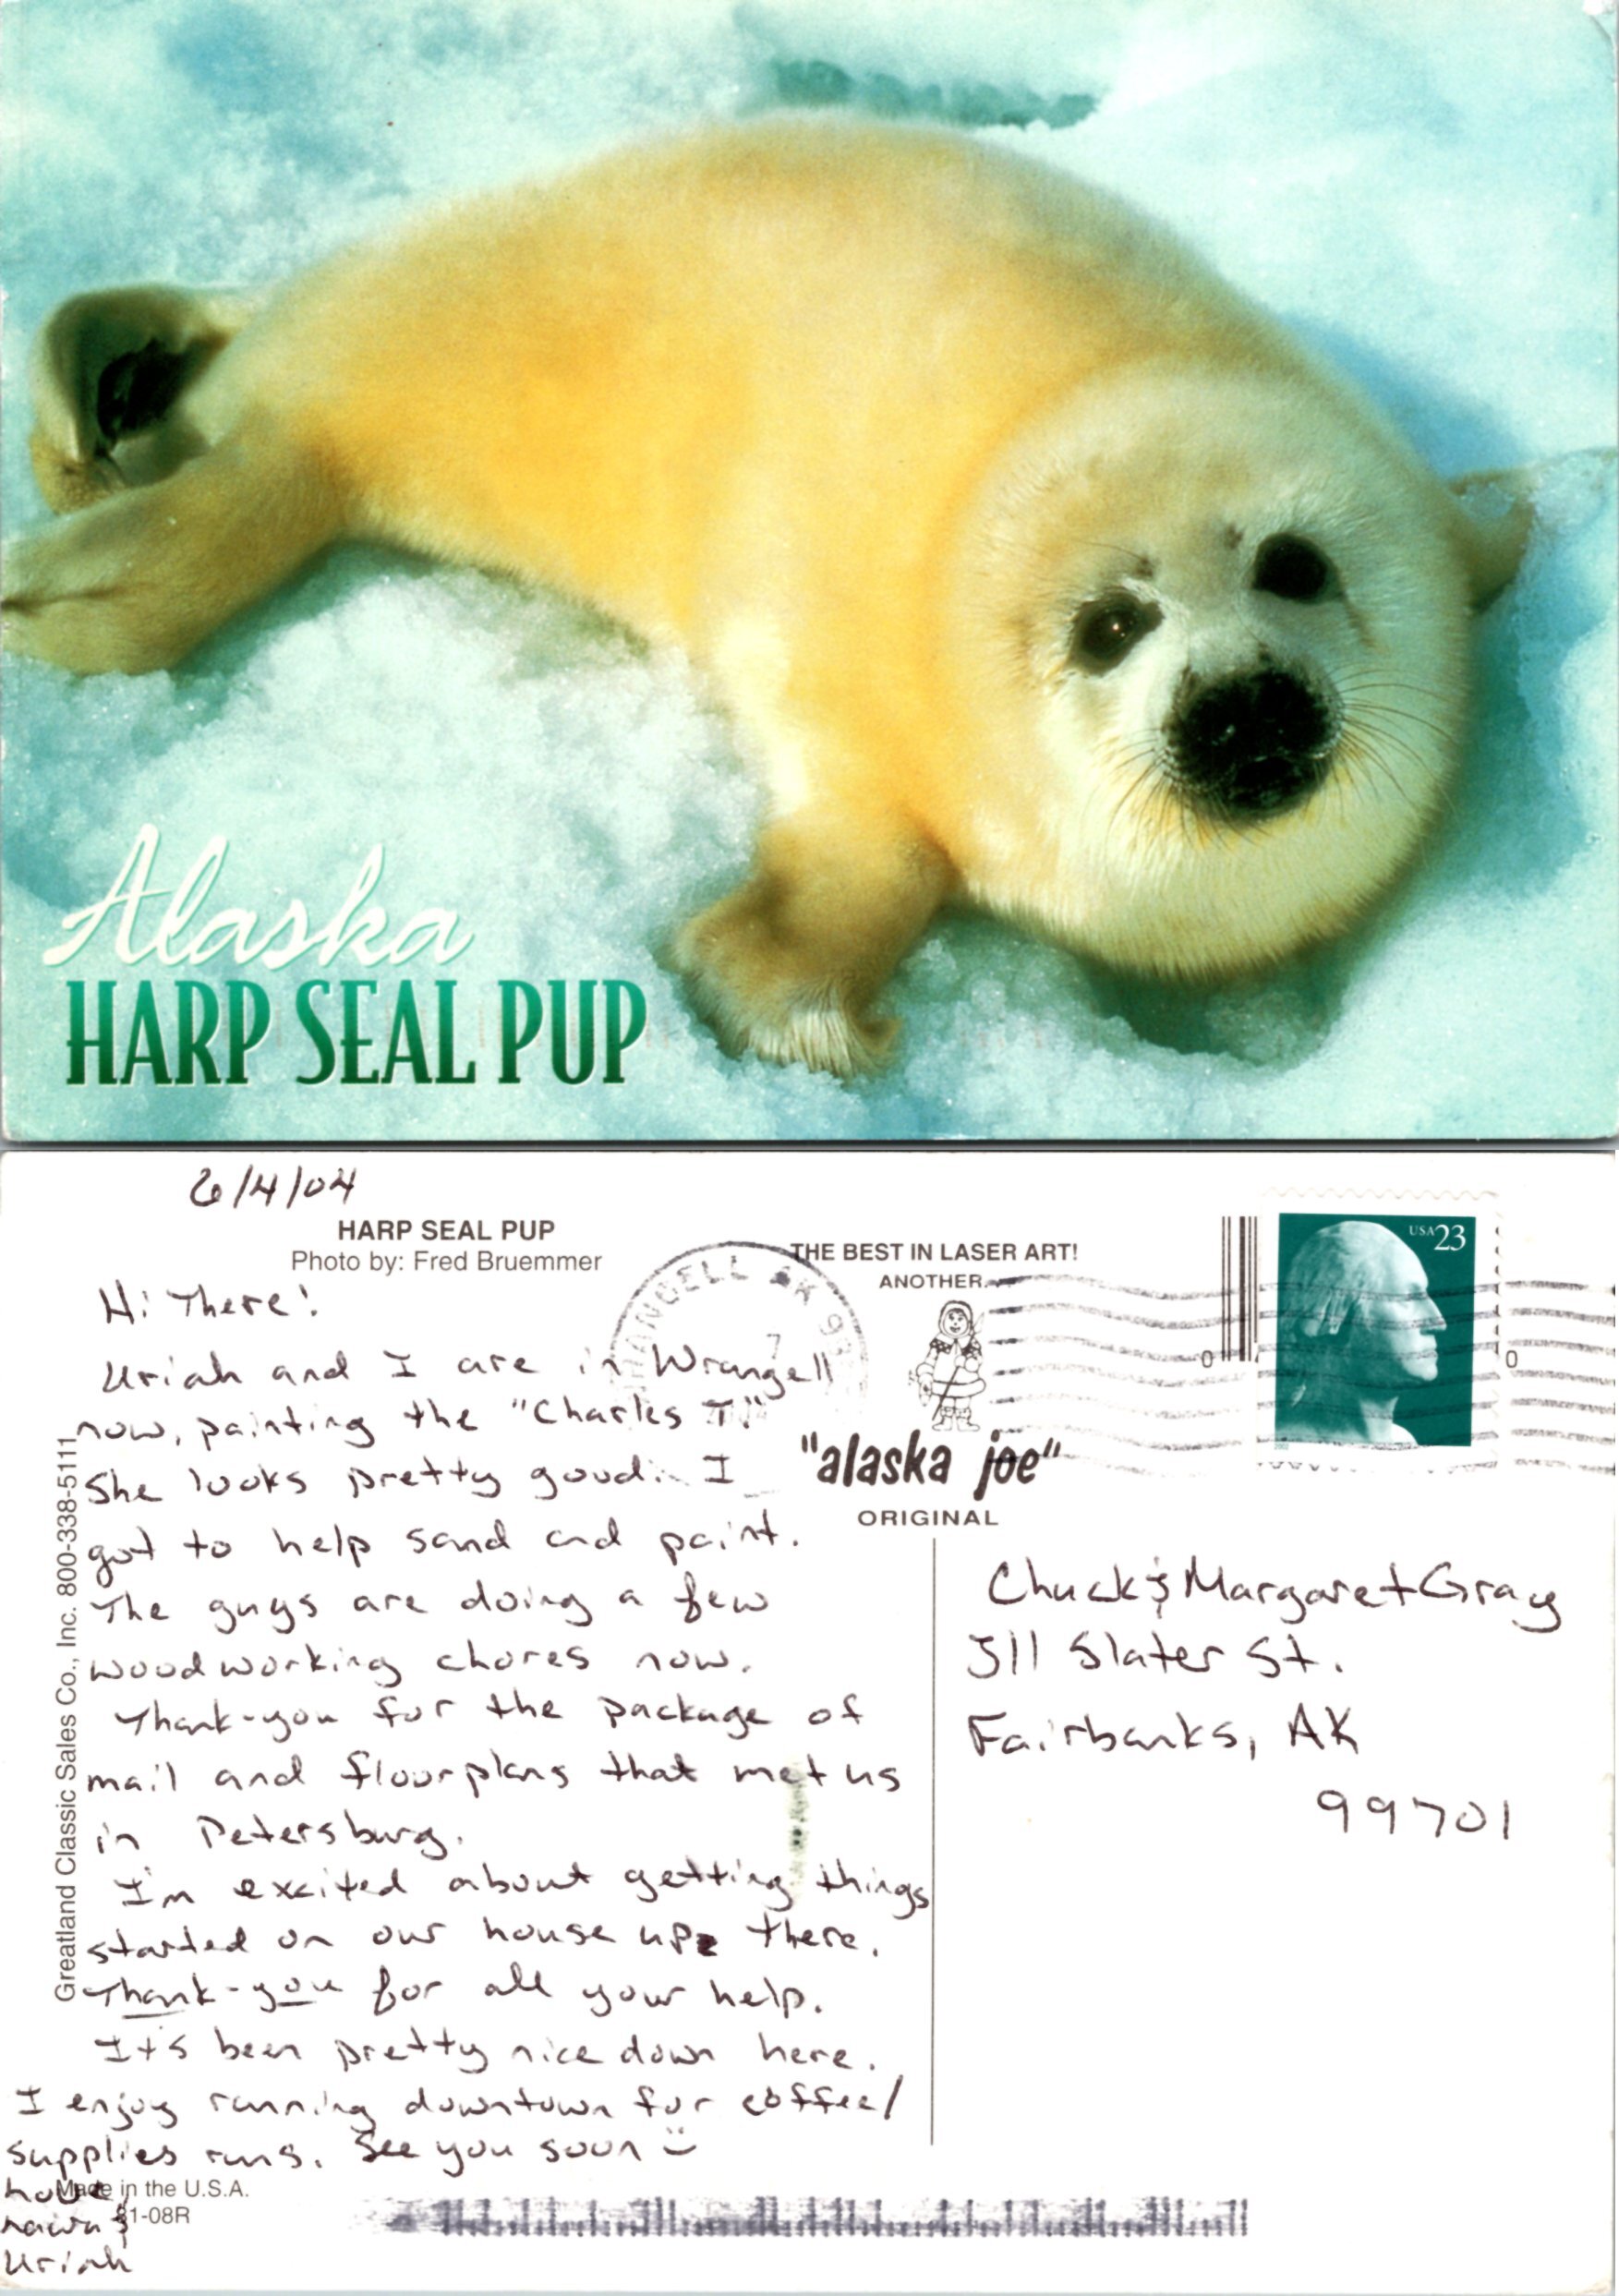 Alaska
HARP SEAL PUP
6/4/04
HARP SEAL PUP
Photo by: Fred Bruemmer
Hi There!
Uriah and I are in Wrangell
now, painting the "Charles T."
She looks pretty good. I
got to help sand and paint.
The guys are doing a few
woodworking chores now.
Thank-you for the package of
mail and floorplans that met us
in Petersburg.
I'm excited about getting things
started on our house up there.
Thank-you for all your help.
It's been pretty nice down here.
I enjoy running downtown for coffee/
supplies runs. See you soon
Love,
&
Uriah
Greatland Classic Sales Co., Inc. 800-338-5111
Made in the U.S.A.
81-08R
WRANGELL AK
7
THE BEST IN LASER ART!
ANOTHER...
"alaska joe"
ORIGINAL
USA 23
Chuck & Margaret Gray
311 Slater St.
Fairbanks, AK
99701